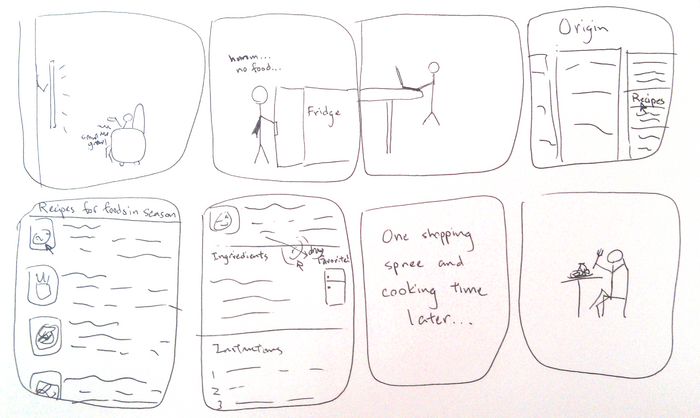 growl
hmmm...
no food...
Fridge
Origin
Recipes
Recipes for foods in season
Ingredients
drag
favorite!
Instructions
1
2
3
One shopping
spree and
cooking time
later...